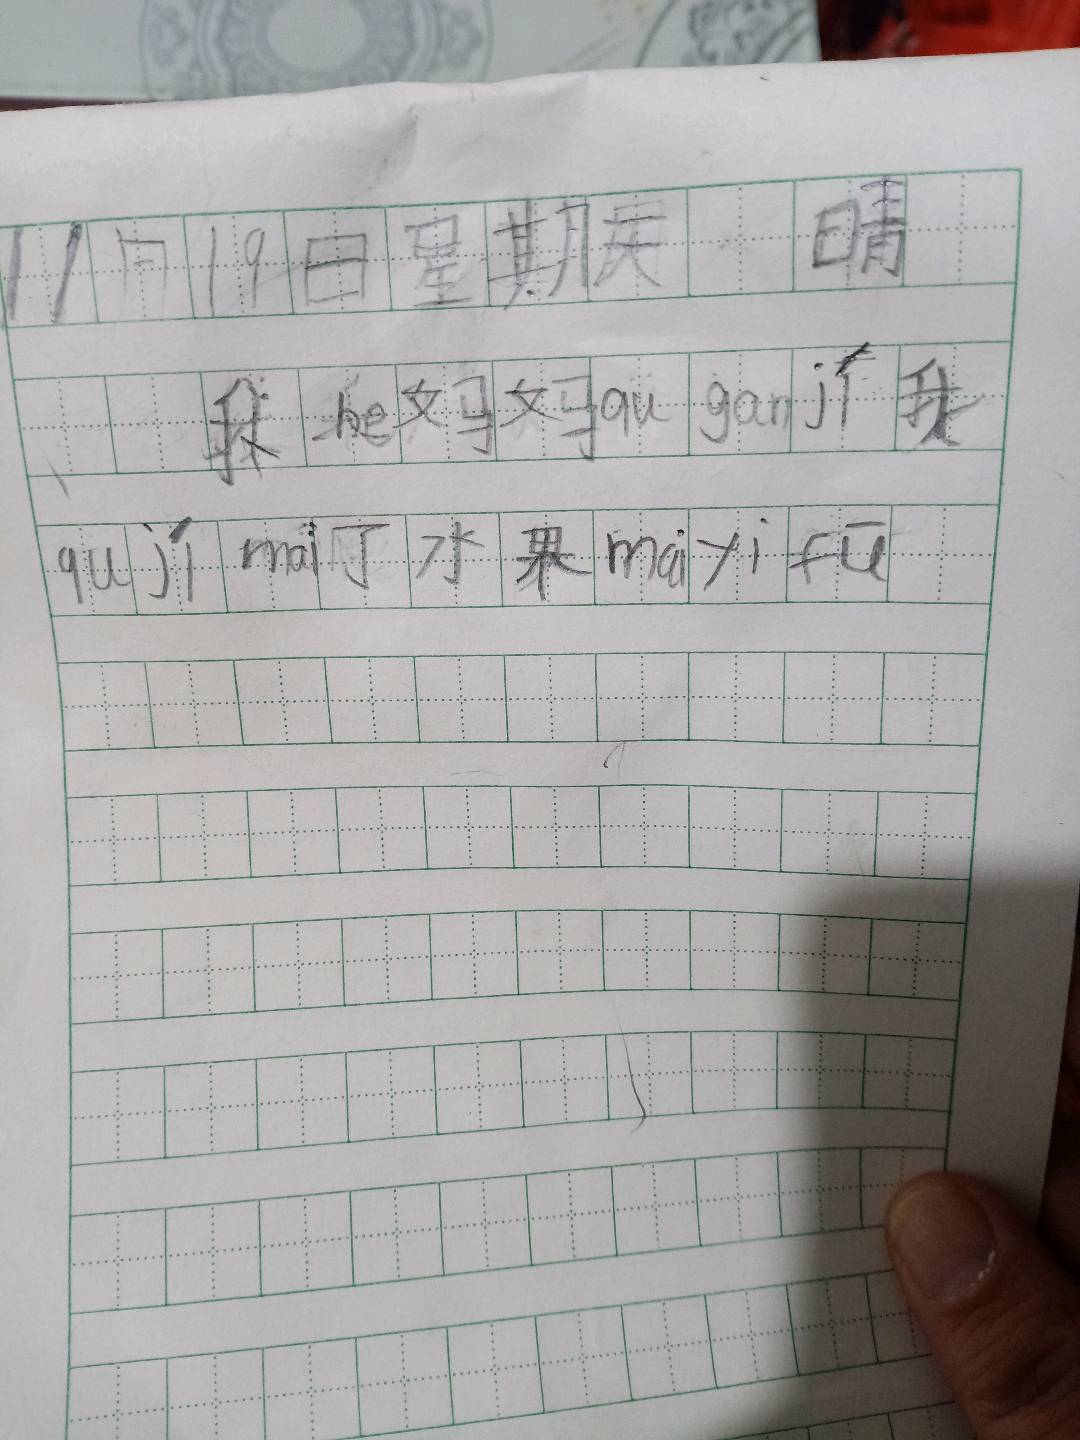 11月19日星期天 晴
我he妈妈qu ganjí我
qují mai了水果maiyi fū